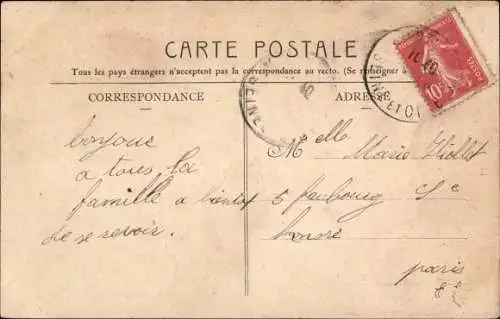 CARTE POSTALE
Tous les pays étrangers n'acceptent pas la correspondance au recto. (Se renseigner à
CORRESPONDANCE
ADRESSE
bonjour
a tous la
famille a bientot
de se revoir.
Melle Marie
5 faubourg St
honoré
paris
8e
10c
POSTES
SEINE